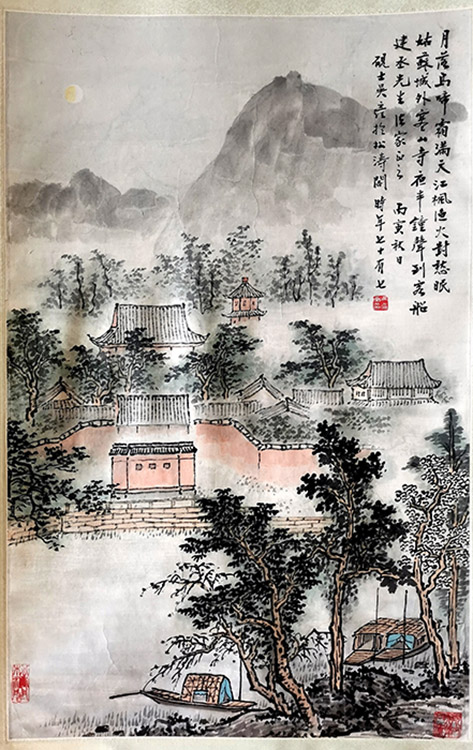 月落烏啼霜滿天江楓漁火對愁眠
姑蘇城外寒山寺夜半鐘聲到客船
建丞先生法家正之 丙寅秋日
硯士吳於松濤閣 時年七十有七